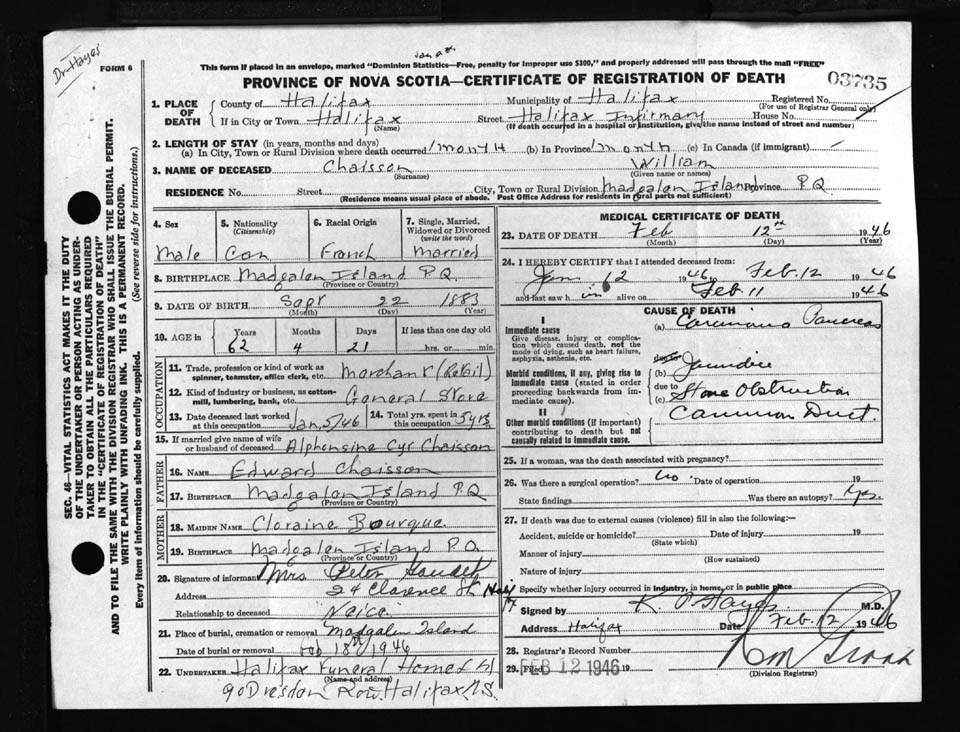 Dr Hayes
FORM 6
This form if placed in an envelope, marked "Dominion Statistics—Free, penalty for improper use $300," and properly addressed will pass through the mail "FREE"
PROVINCE OF NOVA SCOTIA—CERTIFICATE OF REGISTRATION OF DEATH
03735
1. PLACE OF DEATH
County of Halifax Municipality of Halifax Registered No.
(For use of Registrar General only)
If in City or Town Halifax Street Halifax Infirmary House No.
(Name) (If death occurred in a hospital or institution, give the name instead of street and number)
2. LENGTH OF STAY (in years, months and days)
(a) In City, Town or Rural Division where death occurred 1 month (b) In Province 1 month (c) In Canada (if immigrant) –
3. NAME OF DECEASED Chaisson William
(Surname) (Given name or names)
RESIDENCE No. Street City, Town or Rural Division Madgalen Island Province P.Q.
(Residence means usual place of abode. Post Office Address for residents in rural parts not sufficient)
4. Sex
Male
5. Nationality
(Citizenship)
Can
6. Racial Origin
French
7. Single, Married, Widowed or Divorced
(write the word)
Married
8. BIRTHPLACE Madgalen Island P.Q.
(Province or Country)
9. DATE OF BIRTH Sept 22 1883
(Month) (Day) (Year)
10. AGE in Years Months Days If less than one day old
62 4 21 hrs. or min.
OCCUPATION
11. Trade, profession or kind of work as
spinner, teamster, office clerk, etc. Merchant (Retail)
12. Kind of industry or business, as cotton-
mill, lumbering, bank, etc. General Store
13. Date deceased last worked
at this occupation Jan, 5/46
14. Total yrs. spent in
this occupation 5 yrs.
15. If married give name of wife
or husband of deceased Alphensine Cyr Chaisson
FATHER
16. NAME Edward Chaisson
17. BIRTHPLACE Madgalen Island P.Q.
(Province or Country)
MOTHER
18. MAIDEN NAME Cloraine Bourque
19. BIRTHPLACE Madgalen Island P.Q.
(Province or Country)
20. Signature of informant Mrs Peter
Address 24 Clarence St. Halifax
Relationship to deceased Neice
21. Place of burial, cremation or removal Madgalen Island
Date of burial or removal Feb 18th 1946
22. UNDERTAKER Halifax Funeral Home Ltd
(Name and address)
90 Dresden Row. Halifax N.S.
MEDICAL CERTIFICATE OF DEATH
23. DATE OF DEATH Feb 12th 1946
(Month) (Day) (Year)
24. I HEREBY CERTIFY that I attended deceased from:
Jan 12 1946 to Feb. 12 1946
and last saw h im alive on Feb 11 1946
CAUSE OF DEATH
I
Immediate cause
Give disease, injury or complica-
tion which caused death, not the
mode of dying, such as heart failure,
asphyxia, asthenia, etc.
(a) Carcinoma Pancreas
due to
Morbid conditions, if any, giving rise to
immediate cause (stated in order
proceeding backwards from im-
mediate cause).
(b) Jaundice
due to
(c) Stone Obstruction
II
Other morbid conditions (if important)
contributing to death but not
causally related to immediate cause.
Common Duct.
25. If a woman, was the death associated with pregnancy?
26. Was there a surgical operation? no Date of operation 19
State findings Was there an autopsy? Yes.
27. If death was due to external causes (violence) fill in also the following:—
Accident, suicide or homicide? Date of injury 19
(State which)
Manner of injury
(How sustained)
Nature of injury
Specify whether injury occurred in industry, in home, or in public place
Signed by K. P. Hayes M.D.
Address Halifax Date Feb. 12 1946
28. Registrar's Record Number
29. Filed FEB 12 1946 19
(Division Registrar)
SEC. 46–VITAL STATISTICS ACT MAKES IT THE DUTY
OF THE UNDERTAKER OR PERSON ACTING AS UNDER-
TAKER TO OBTAIN ALL THE PARTICULARS REQUIRED
IN THE "CERTIFICATE OF REGISTRATION OF DEATH"
AND TO FILE THE SAME WITH THE DIVISION REGISTRAR WHO SHALL ISSUE THE BURIAL PERMIT.
WRITE PLAINLY WITH UNFADING INK. THIS IS A PERMANENT RECORD.
Every item of information should be carefully supplied. (See reverse side for instructions.)